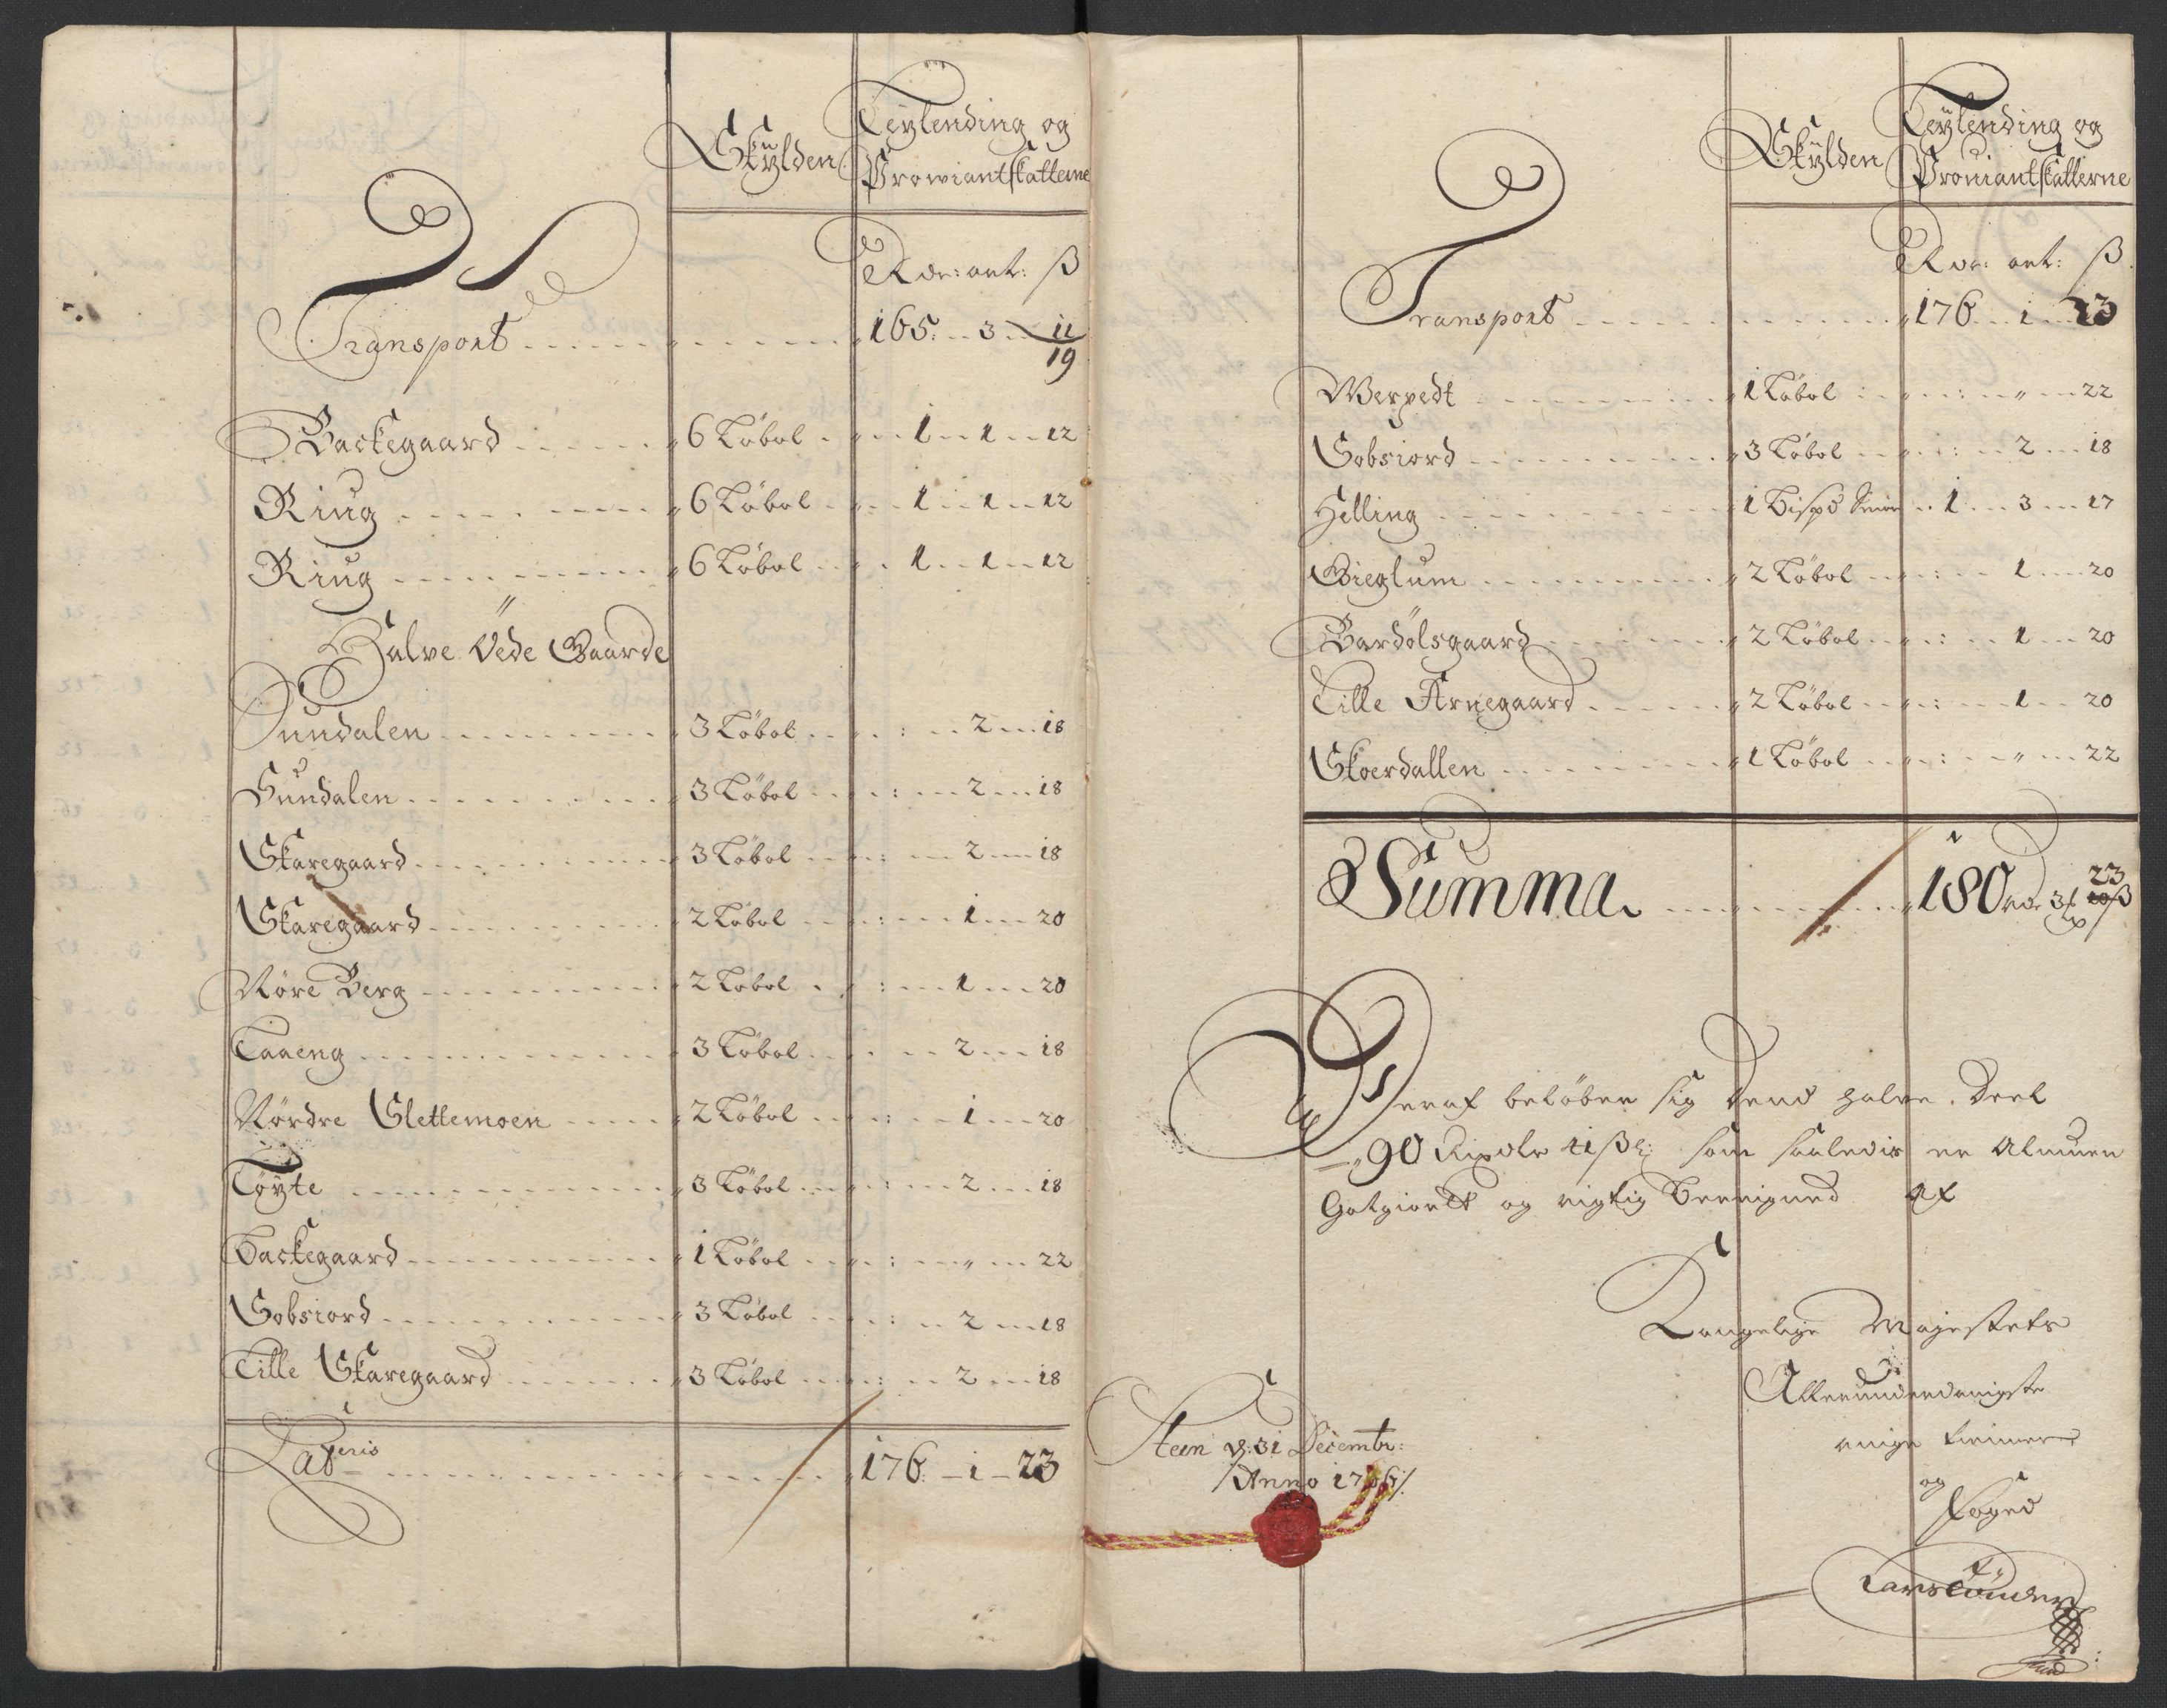 Skylden
Leylending og
Prowiantskatterne
Rdr: ort: ß
Transport 165 3 11
19
Backegaard 6 Løbol 1 1 12
Ring 6 Løbol 1 1 12
Ring 6 Løbol 1 1 12
Halve Øde Gaarde
Sundalen 3 Løbol : 2 18
Sundalen 3 Løbol : 2 18
Skaregaard 3 Løbol : 2 18
Skaregaard 2 Løbol : 1 20
Nøre Berg 2 Løbol : 1 20
Taaeng 3 Løbol 2 18
Nørdre Slettemoen 2 Løbol : 1 20
Tøyte 3 Løbol : 2 18
Backegaard 1 Løbol : " 22
Sobsiord 3 Løbol : 2 18
Lille Skaregaard 3 Løbol : 2 18
Lateris 176 - 1 - 23
Skylden
Leylending og
Proviantskatterne
Rdr: ort: ß
Transport 176 1 23
Werpedt 1 Løbol : " 22
Sobsiord 3 Løbol : 2 18
Helling 1 Bispd 1 3 17
Gieglum 2 Løbol : 1 20
Bardølsgaard 2 Løbol : 1 20
Lille Arnegaard 2 Løbol : 1 20
Skoerdallen 1 Løbol : " 22
Summa 180 rdr 3 23 ß
Heraf beløber sig dend halve Deel
90 Rixdlr 41 ß som saaledis er Almuen
Gotgiordt og rigtig Beregned af
Kongelige Majestets
Allerunderdanigste
ringe tienere
og
Foged
Steen d: 31 Decembr:
Anno 1706 /.
Lars Tønder